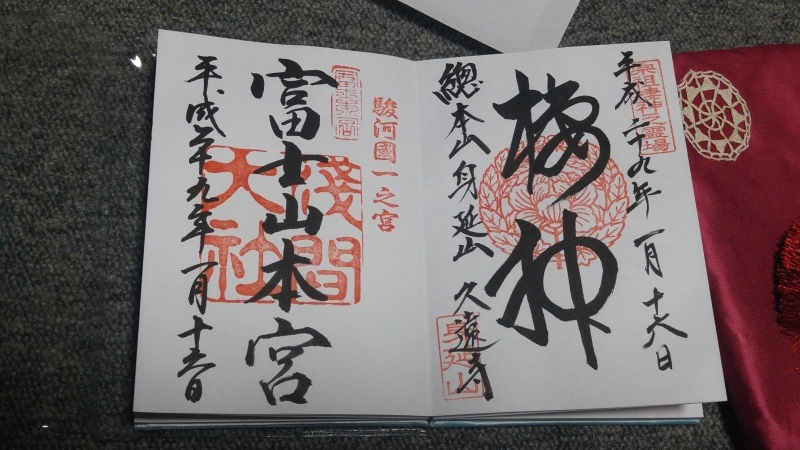 宗祖棲神之霊場
平成二十九年 一月 十六日
棲神
總本山身延山 久遠寺
身延山
駿河國一之宮
富士山本宮
淺間大社
平成二十九年一月十六日